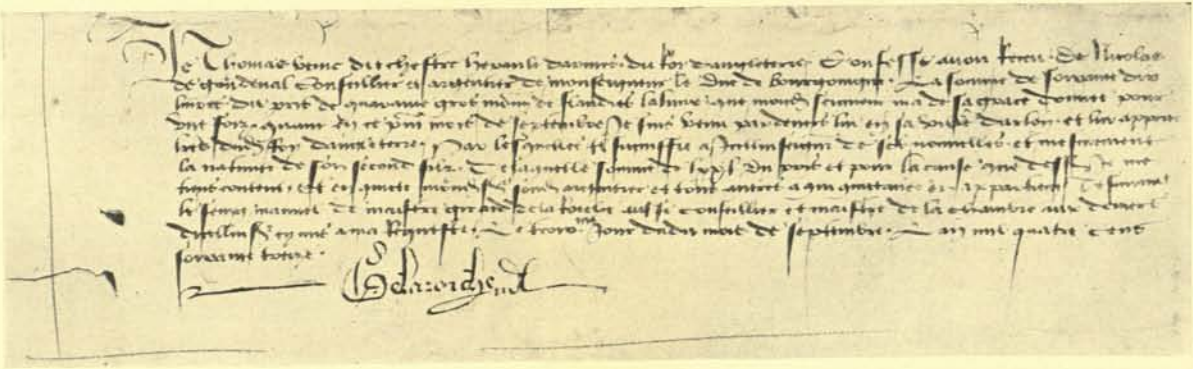 Je Thomas dit Chestre herault darmes du Roy dangleterre Confesse avoir Receu De Nicolas
de gondeval Conseillier et argentier de monseigneur le Duc de Bourgoingne La somme de soixante dix
livres du pris de quarante gros monn de flandres la livre que mond seigneur ma de sa grace donnee pour
une fois quant en ce mois de septembre Je suis venu pardevers lui en sa et lui apporte
dud Roy dangleterre Par lesquelles il signiffie a de ses nouvelles et mesmement
la nativite de son second filz De laquelle somme de lxx l du pris et pour la cause que dessus Je me
tiens content et en quicte mond sr sond argentier et tous autres a qui quictance en appartient Tesmoing
le seing manuel de maistre aussi Conseillier et maistre de la chambre aux deniers
dicellui sr cy mis a ma Requeste Le jour dudit mois de septembre Lan mil quatre cens
soixante treze